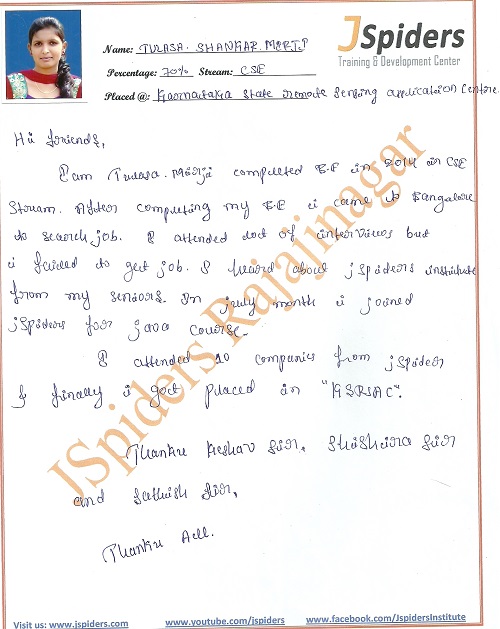 JSpiders
Training & Development Center
Name: TULASA. SHANKAR. MERJI
Percentage: 70% Stream: CSE
Placed @: Karnataka State remote sensing application Centre
Hi friends,
I am Tulasa. Merji completed B.E in 2014 in CSE
Stream. After completing my B.E i came to Bangalore
to search job. I attended lot of interviews but
i failed to get job. I heard about jspiders institute
from my seniors. In july month i joined
jspiders for java course.
I attended 10 companies from jspider
& finally i got placed in "KSRSAC".
Thanku Keshav Sir, Shishira Sir
and Sathish Sir,
Thanku All.
JSpiders Rajajinagar
Visit us: www.jspiders.com www.youtube.com/jspiders www.facebook.com/JspidersInstitute